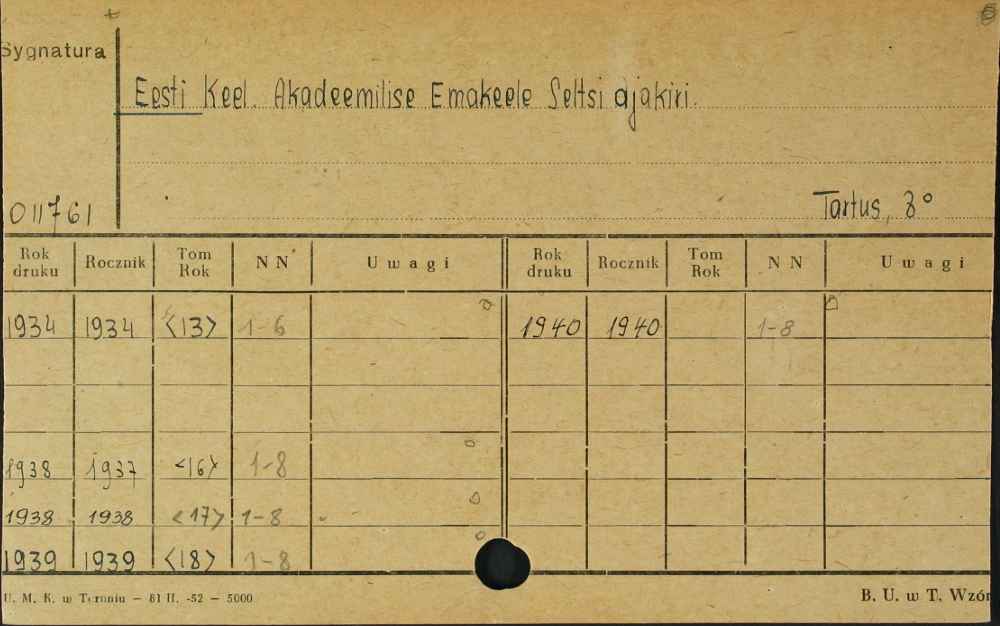 Sygnatura
Eesti Keel. Akadeemilise Emakeele Seltsi ajakiri.
011761
Tartus, 8°
Rok druku Rocznik Tom Rok N N U w a g i Rok druku Rocznik Tom Rok N N U w a g i
1934 1934 <13> 1-6 1940 1940 1-8
1938 1937 <16> 1-8
1938 1938 <17> 1-8
1939 1939 <18> 1-8
U. M. K. w Toruniu — 81 II. -52 — 5000
B. U. w T. Wzór